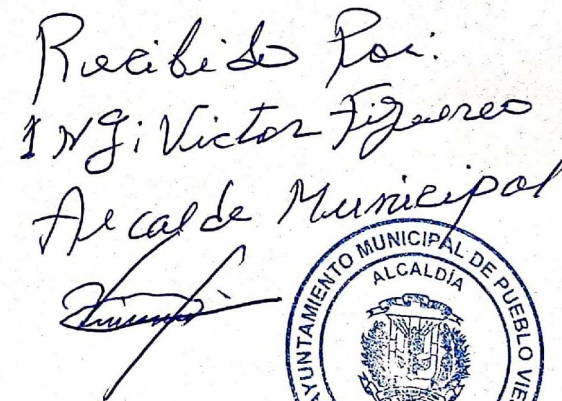 Recibido Por:
ING: Victor Figuereo
Alcalde Municipal
AYUNTAMIENTO MUNICIPAL DE PUEBLO VIE
ALCALDÍA